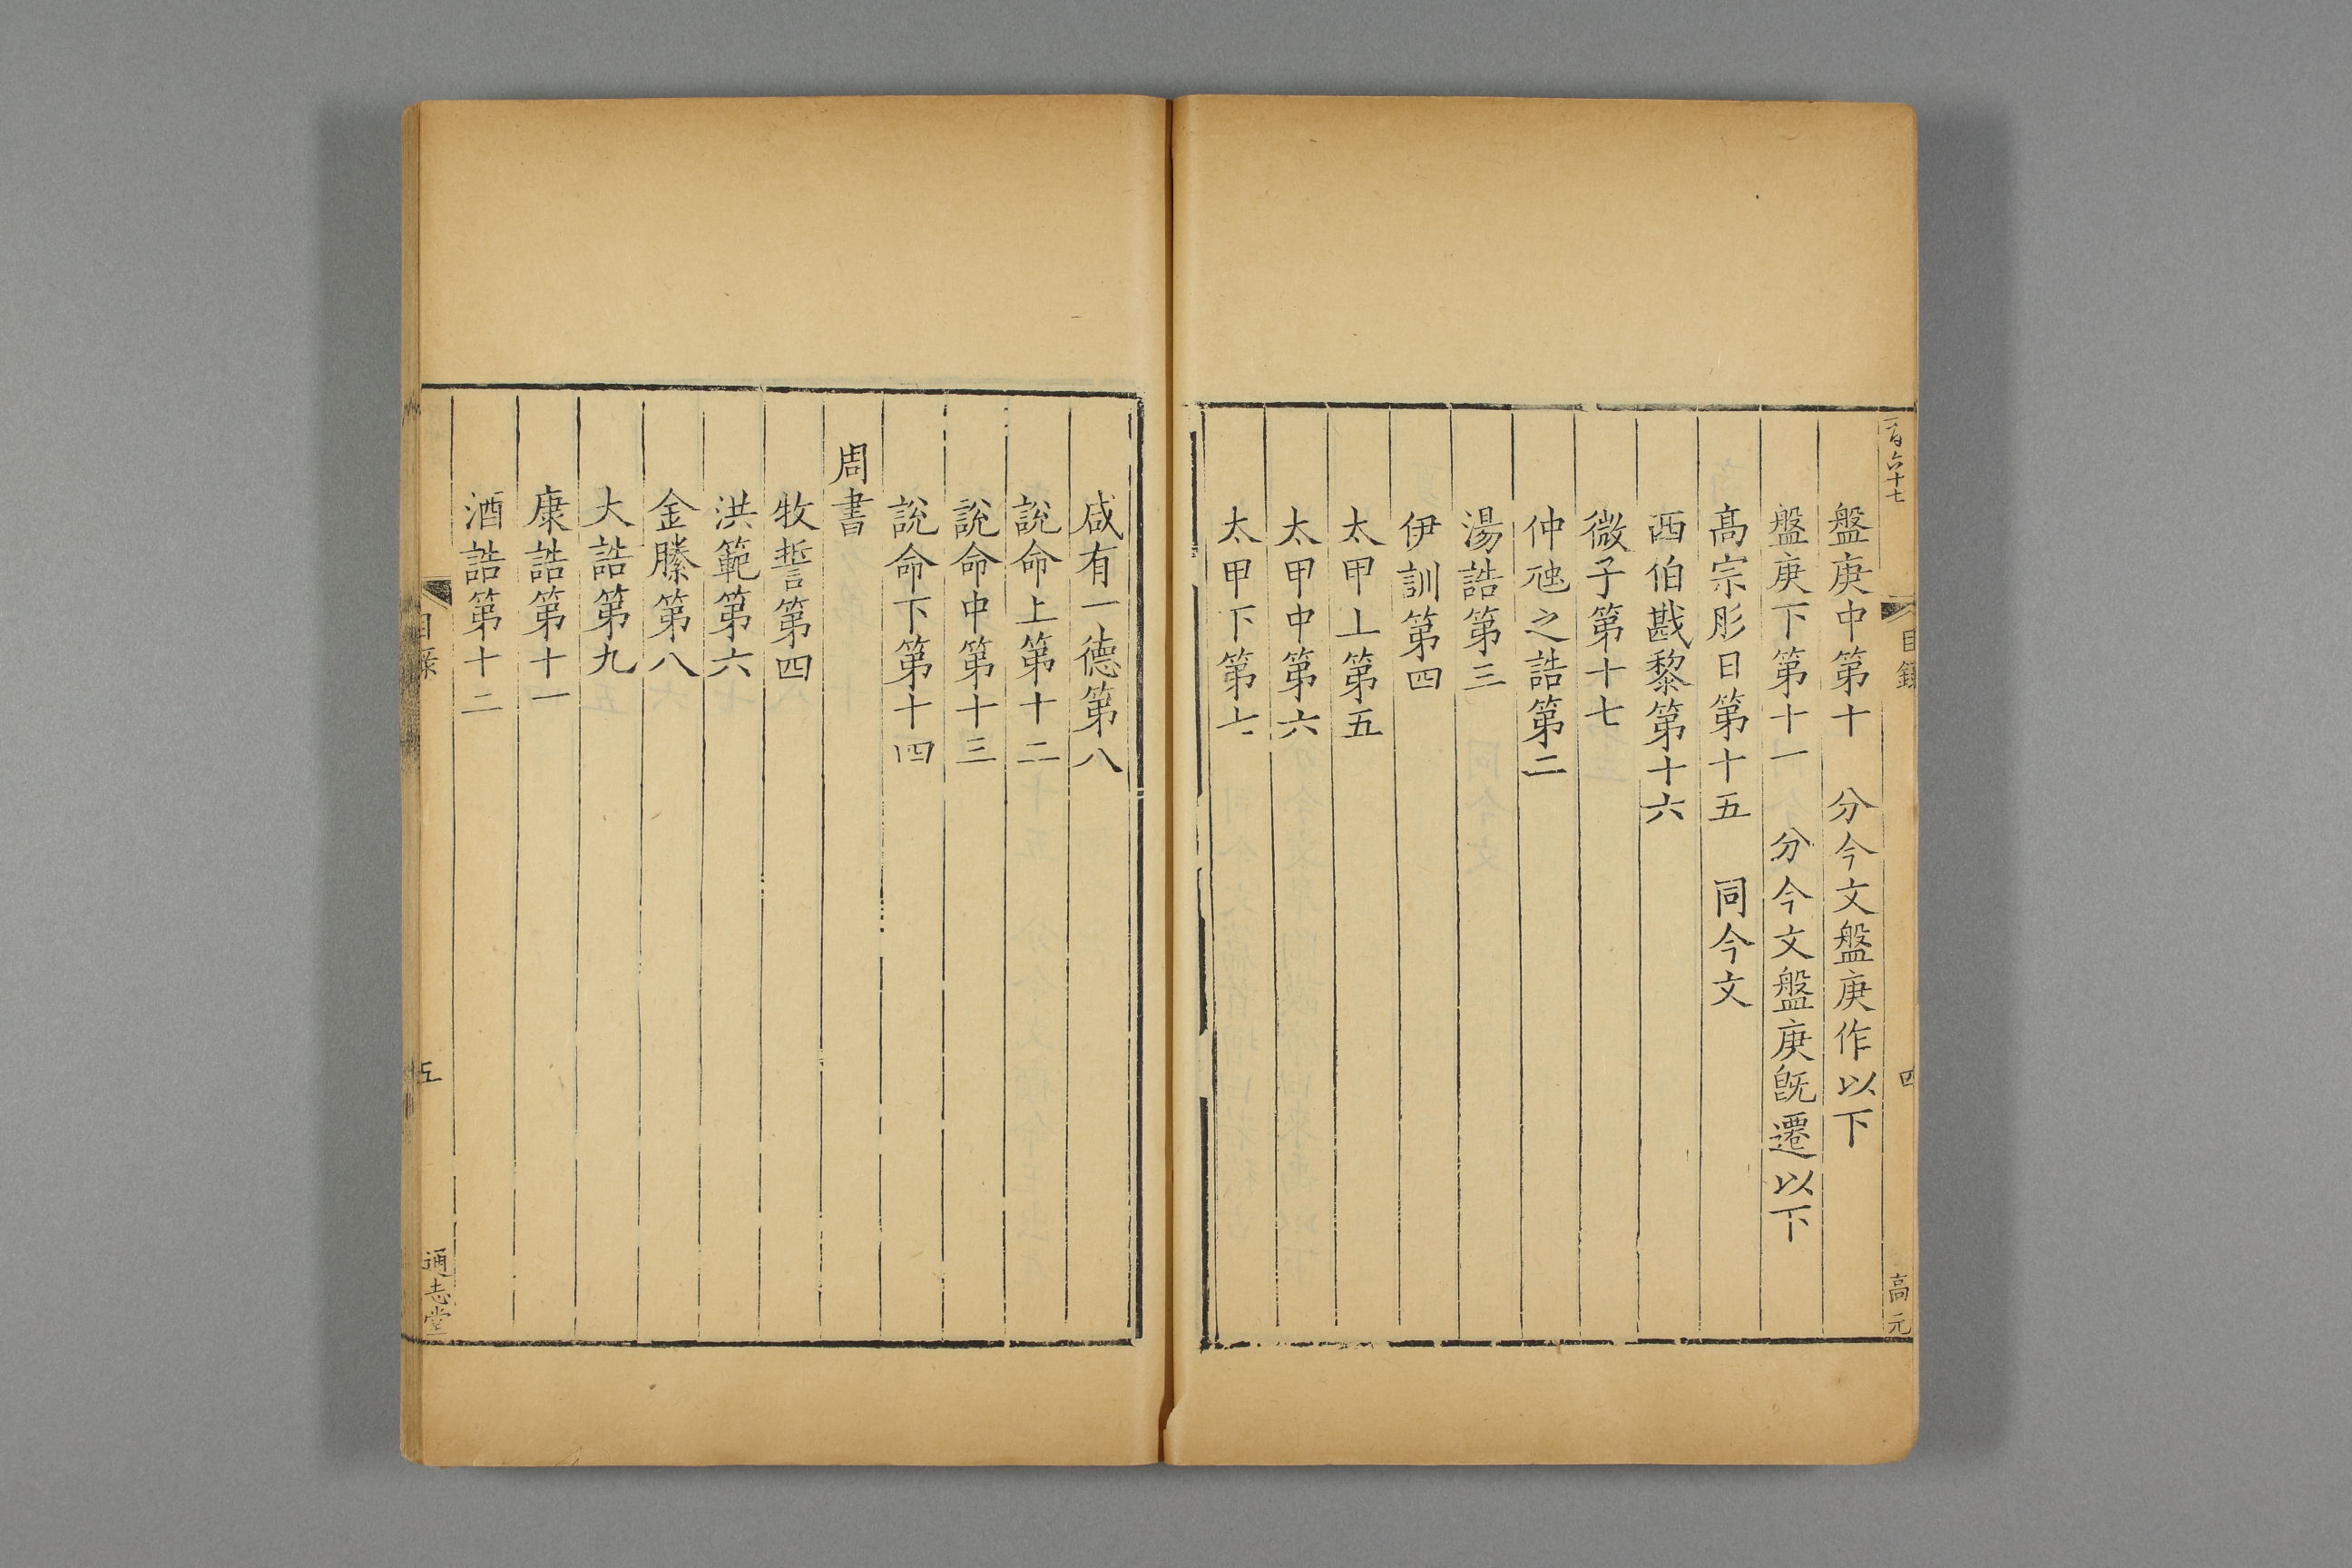 百六十七
目錄
四
高元
盤庚中第十　分今文盤庚作以下
盤庚下第十一　分今文盤庚旣遷以下
高宗肜日第十五　同今文
西伯戡黎第十六
微子第十七
仲虺之誥第二
湯誥第三
伊訓第四
太甲上第五
太甲中第六
太甲下第七
咸有一德第八
說命上第十二
說命中第十三
說命下第十四
周書
牧誓第四
洪範第六
金縢第八
大誥第九
康誥第十一
酒誥第十二
目錄
五
通志堂